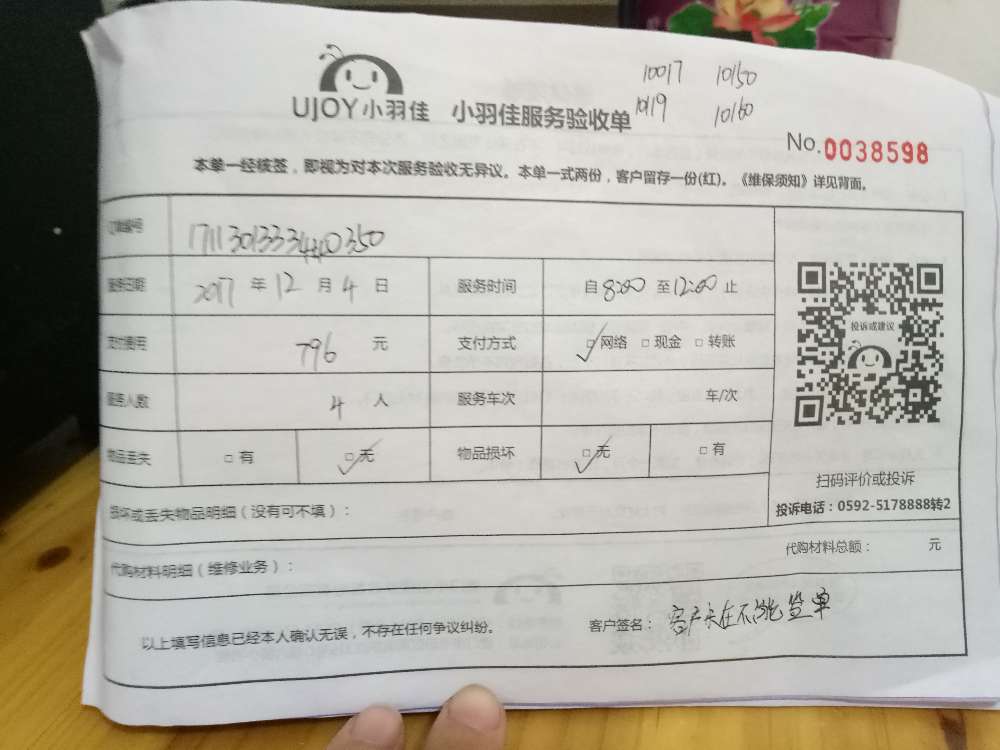 10017 10150
10119 10160
UJOY小羽佳 小羽佳服务验收单
No.0038598
本单一经核签，即视为对本次服务验收无异议。本单一式两份，客户留存一份(红)。《维保须知》详见背面。
订单编号
服务日期 2017 年 12 月 4 日 服务时间 自 8:00 至 12:00 止
投诉或建议
支付费用 796 元 支付方式 □网络 □现金 □转账
服务人数 4 人 服务车次 车/次
物品丢失 □有 □无 物品损坏 □无 □有
扫码评价或投诉
投诉电话：0592-5178888转2
损坏或丢失物品明细（没有可不填）：
代购材料明细（维修业务）：
代购材料总额： 元
以上填写信息已经本人确认无误，不存在任何争议纠纷。 客户签名：客户未在不能签单